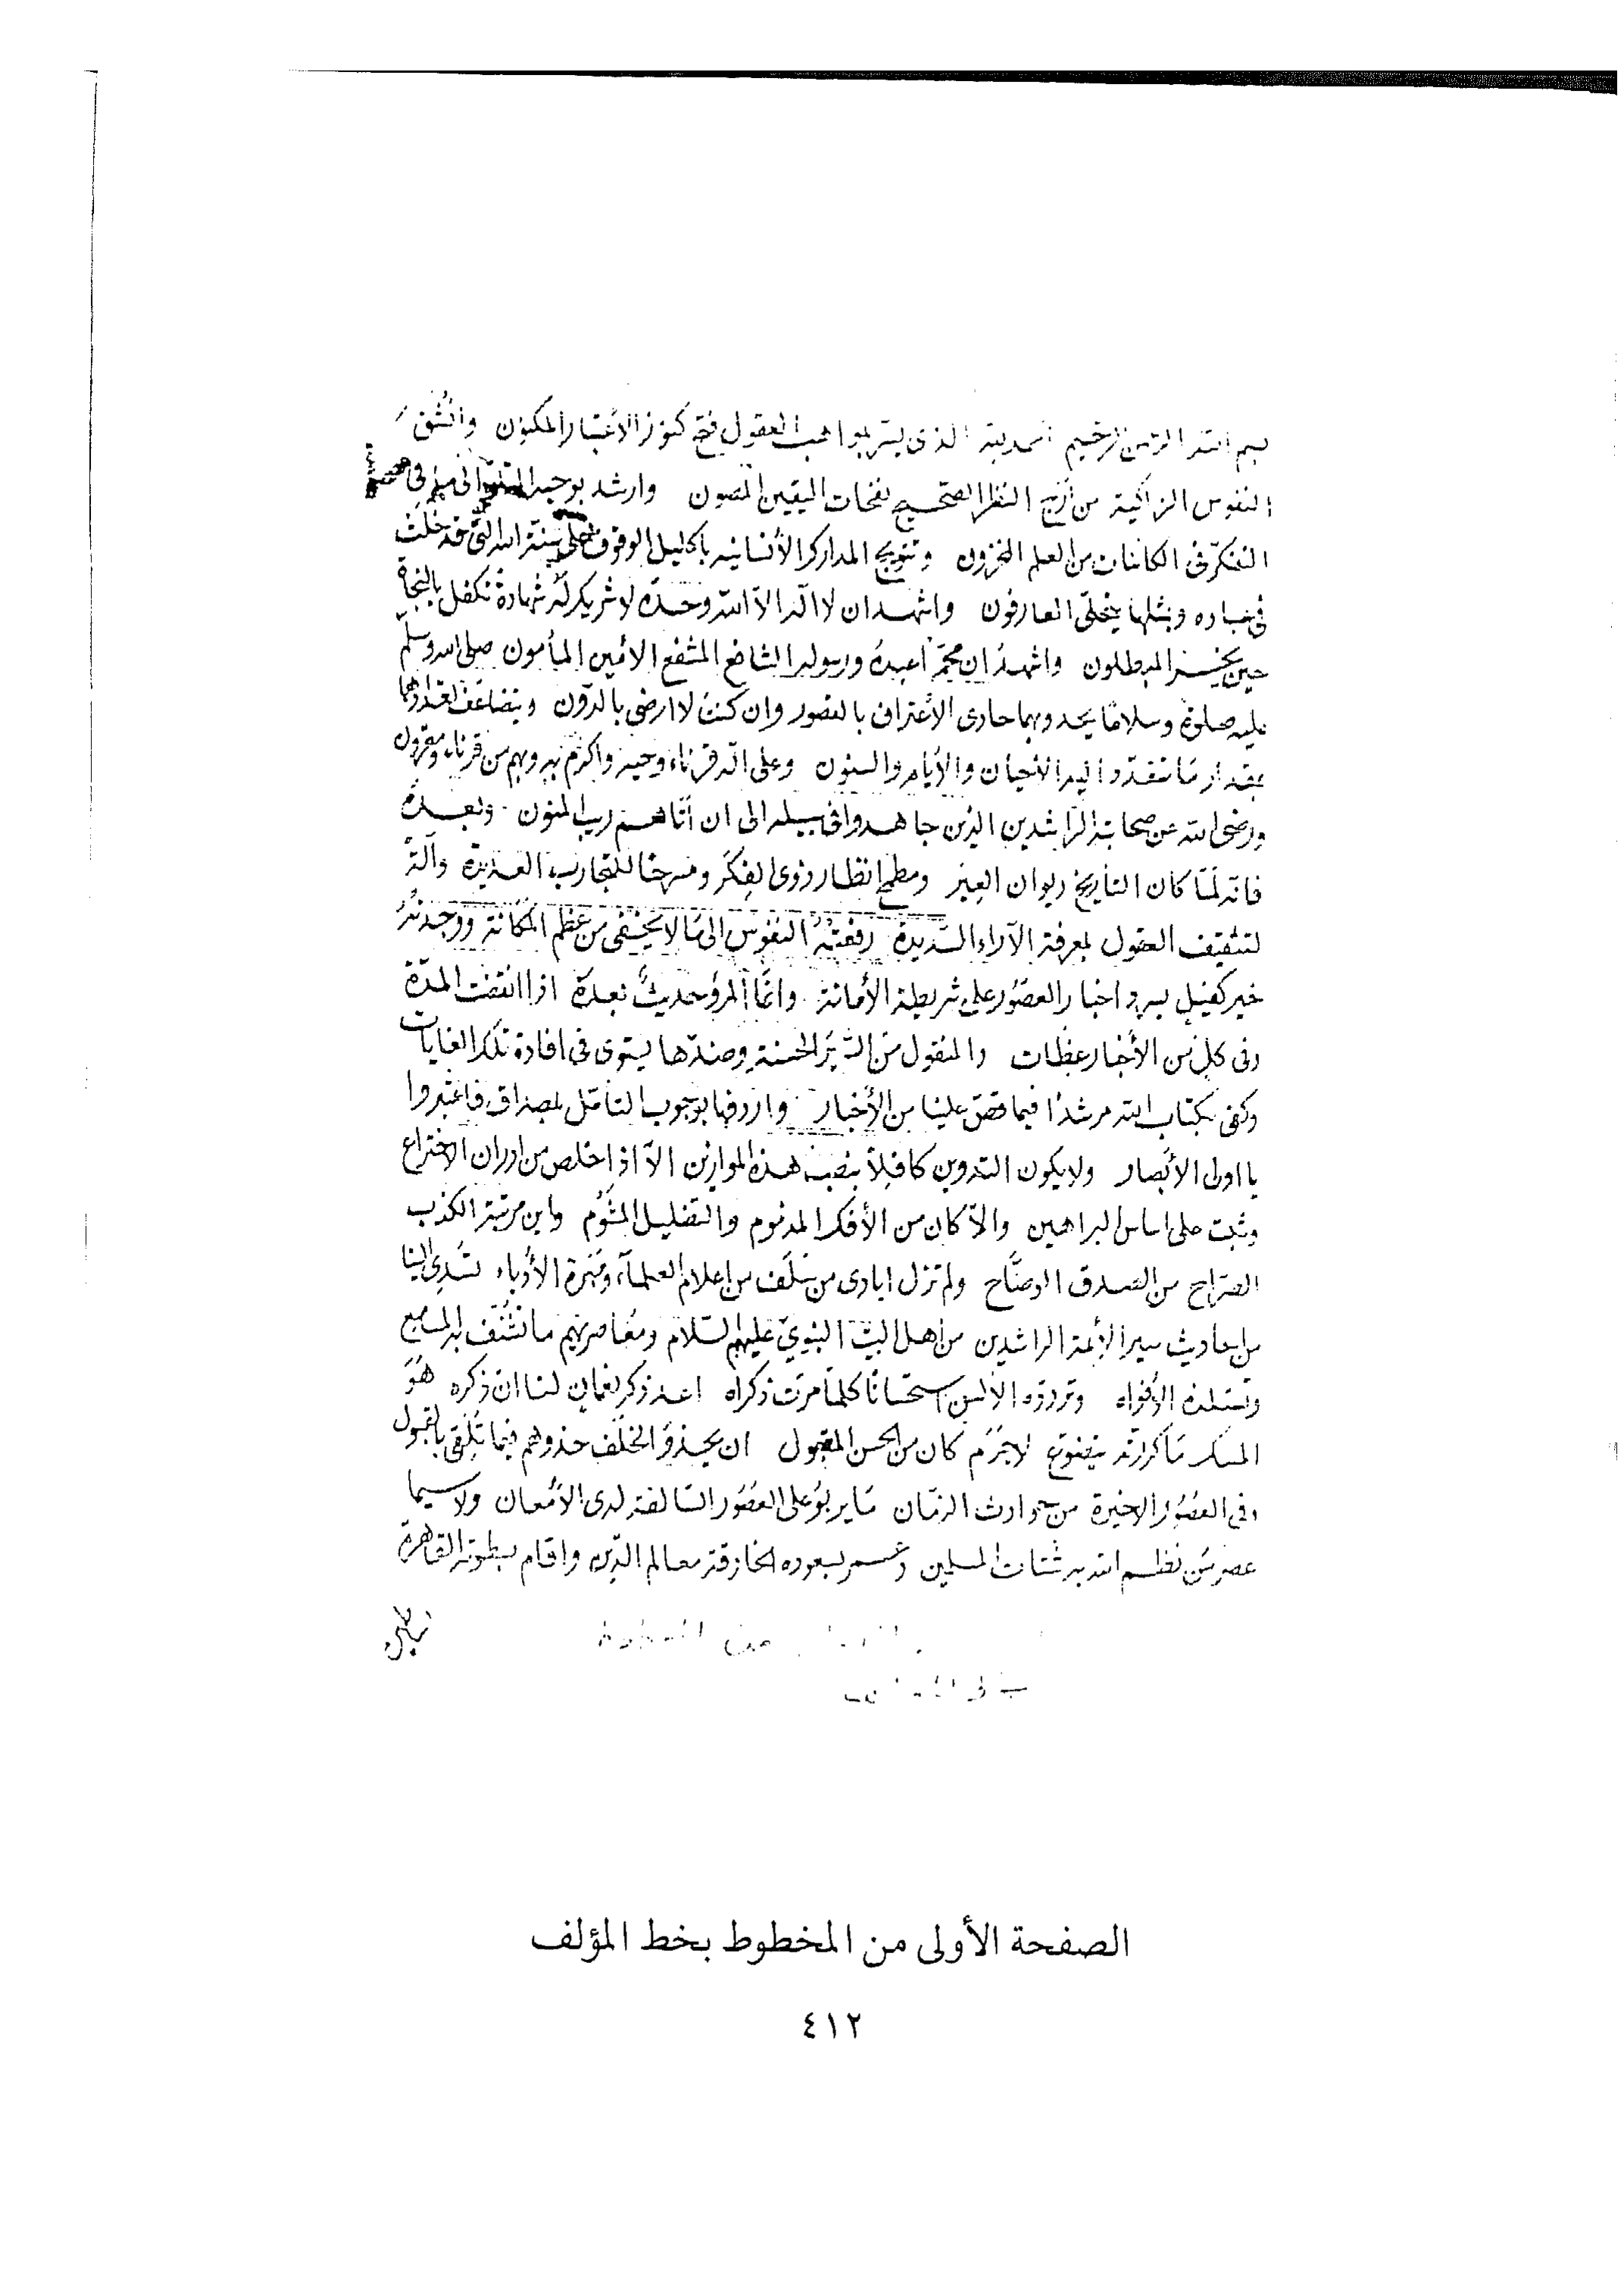 بسم الله الرحمن الرحيم الحمد لله الذى يسر بمواهب العقول فتح كنوز الاعتبار المكنون وانشق
النفوس الزاكية من أرج النظر الصحيح نفحات اليقين المصون وارشد بوحيه الى ما فى
التفكر فى الكائنات من العلم المخزون وتتويج المدارك الأنسانيه باكليل الوقوف على سنة الله التى قد خلت
فى عباده وبمثلها يتحلى العارفون واشهد ان لا اله الا الله وحده لا شريك له شهادة تكفل بالنجاة
حين يخسر المبطلون واشهد ان محمدا عبده ورسوله الشافع المشفع الامين المأمون صلى الله وسلم
عليه صلوة وسلاما يحدو بهما حادى الأعتراف بالقصور وان كنت لا ارضى بالدون ويتضاعف تعدادهما
بمقدار ما تتعدد اليه الأحيان والأيام والسنون وعلى آله قرناء وحيه واكرم به وبهم من قرناء ومقرون
ورضى الله عن صحابته الراشدين الذين جاهدوا فى سبيله الى ان أتاهم ريب المنون وبعد
فانه لما كان التأريخ ديوان العبر ومطمح انظار ذوى الفكر ومسرحا للتجارب العديدة وآلة
لتثقيف العقول لمعرفة الآراء السديدة رفعته النفوس الى ما لا يخفى من عظم المكانة ووجدته
خير كفيل بسرد اخبار العصور على شريطة الأمانة وانما المرؤ حديث بعده اذا انقضت المدة
وفى كل من الأخبار عظات والمنقول من السير الحسنة وضدها يستوى فى افادة تلك الغايات
وكفى بكتاب الله مرشدا فيما قص علينا من الأخبار واردفها بوجوب التأمل بمصداق فاعتبروا
يا اولى الأبصار ولا يكون التدوين كافلاً بنصب هذه الموازين الا اذا خلص من ادران الاختراع
وثبت على اساس البراهين والا كان من الأفك المذموم والتضليل المشوم واين مرتبة الكذب
الصراح من الصدق الوضاح ولم تزل ايادى من سلف من اعلام العلماء ومهرة الأدباء تسدى الينا
من احاديث سير الأئمة الراشدين من اهل البيت النبوى عليهم السلام ومعاصريهم ما تشنف به المسامع
وتستلذه الأفواه وتردده الألسن استحسانا كلما مرت ذكراه اعد ذكر نعمان لنا ان ذكره هو
المسك ما كررته يتضوع لاجرم كان من الحسن المقبول ان يحذو الخلف حذوهم فيما تلقى بالقبول
وفى العصور الاخيرة من حوادث الزمان ما يربو على العصور السالفة لدى الأمعان ولا سيما
عصر من نظم الله به شتات المسلمين وعمر بسعوده الخارقة معالم الدين واقام بسطوته القاهرة
الصفحة الأولى من المخطوط بخط المؤلف
٤١٢